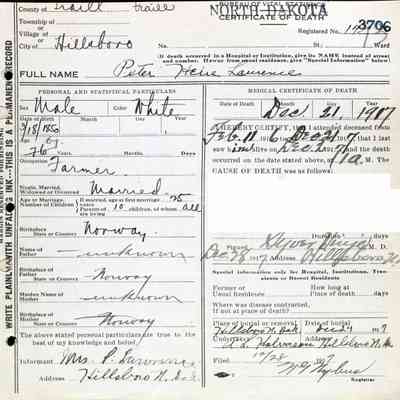 County of Traill
BUREAU OF VITAL STATISTICS
NORTH DAKOTA
CERTIFICATE OF DEATH
3706
Township of
or
Village of
or
City of Hillsboro
Registered No.
No. St. Ward
(If death occurred in a Hospital or Institution, give its NAME instead of street
and number. If away from usual residence, give "Special Information" below.)
FULL NAME Peter Laurence
WRITE PLAINLY WITH UNFADING INK—THIS IS A PERMANENT RECORD
PERSONAL AND STATISTICAL PARTICULARS
Sex Male Color White
Date of Birth 3/18/1850
Month Day Year
Age
76 Years Months Days
Occupation Farmer
Single, Married,
Widowed or Divorced Married
Age at Marriage, Number of Children
If married, age at first marriage 25 years
Parents of 10 children, of whom all are living
Birthplace
State or Country Norway
Name of Father unknown
Birthplace of Father
State or Country Norway
Maiden Name of Mother unknown
Birthplace of Mother
State or Country Norway
The above stated personal particulars are true to the
best of my knowledge and belief
Informant Mrs. P.
Address Hillsboro N. Dak.
MEDICAL CERTIFICATE OF DEATH
Date of Death Dec. 21, 1917
Month Day Year
I HEREBY CERTIFY, that I attended deceased from
Feb. 11 1916 to Dec 21 1917 that I last
saw him alive on Dec. 1917 and that death
occurred on the date stated above, at M. The
CAUSE OF DEATH was as follows:
Duration days
Signed M. D.
1917 Address Hillsboro N.
Special information only for Hospitals, Institutions, Transients or Recent Residents
Former or
Usual Residence
How long at
Place of death days
Where was disease contracted,
if not at place of death?
Place of burial or removal Date of burial
Hillsboro N. Dak. Dec 24 1917
Undertaker Halvorson Hillsboro N. Dak.
Address
Filed 12/28 1917
Registrar